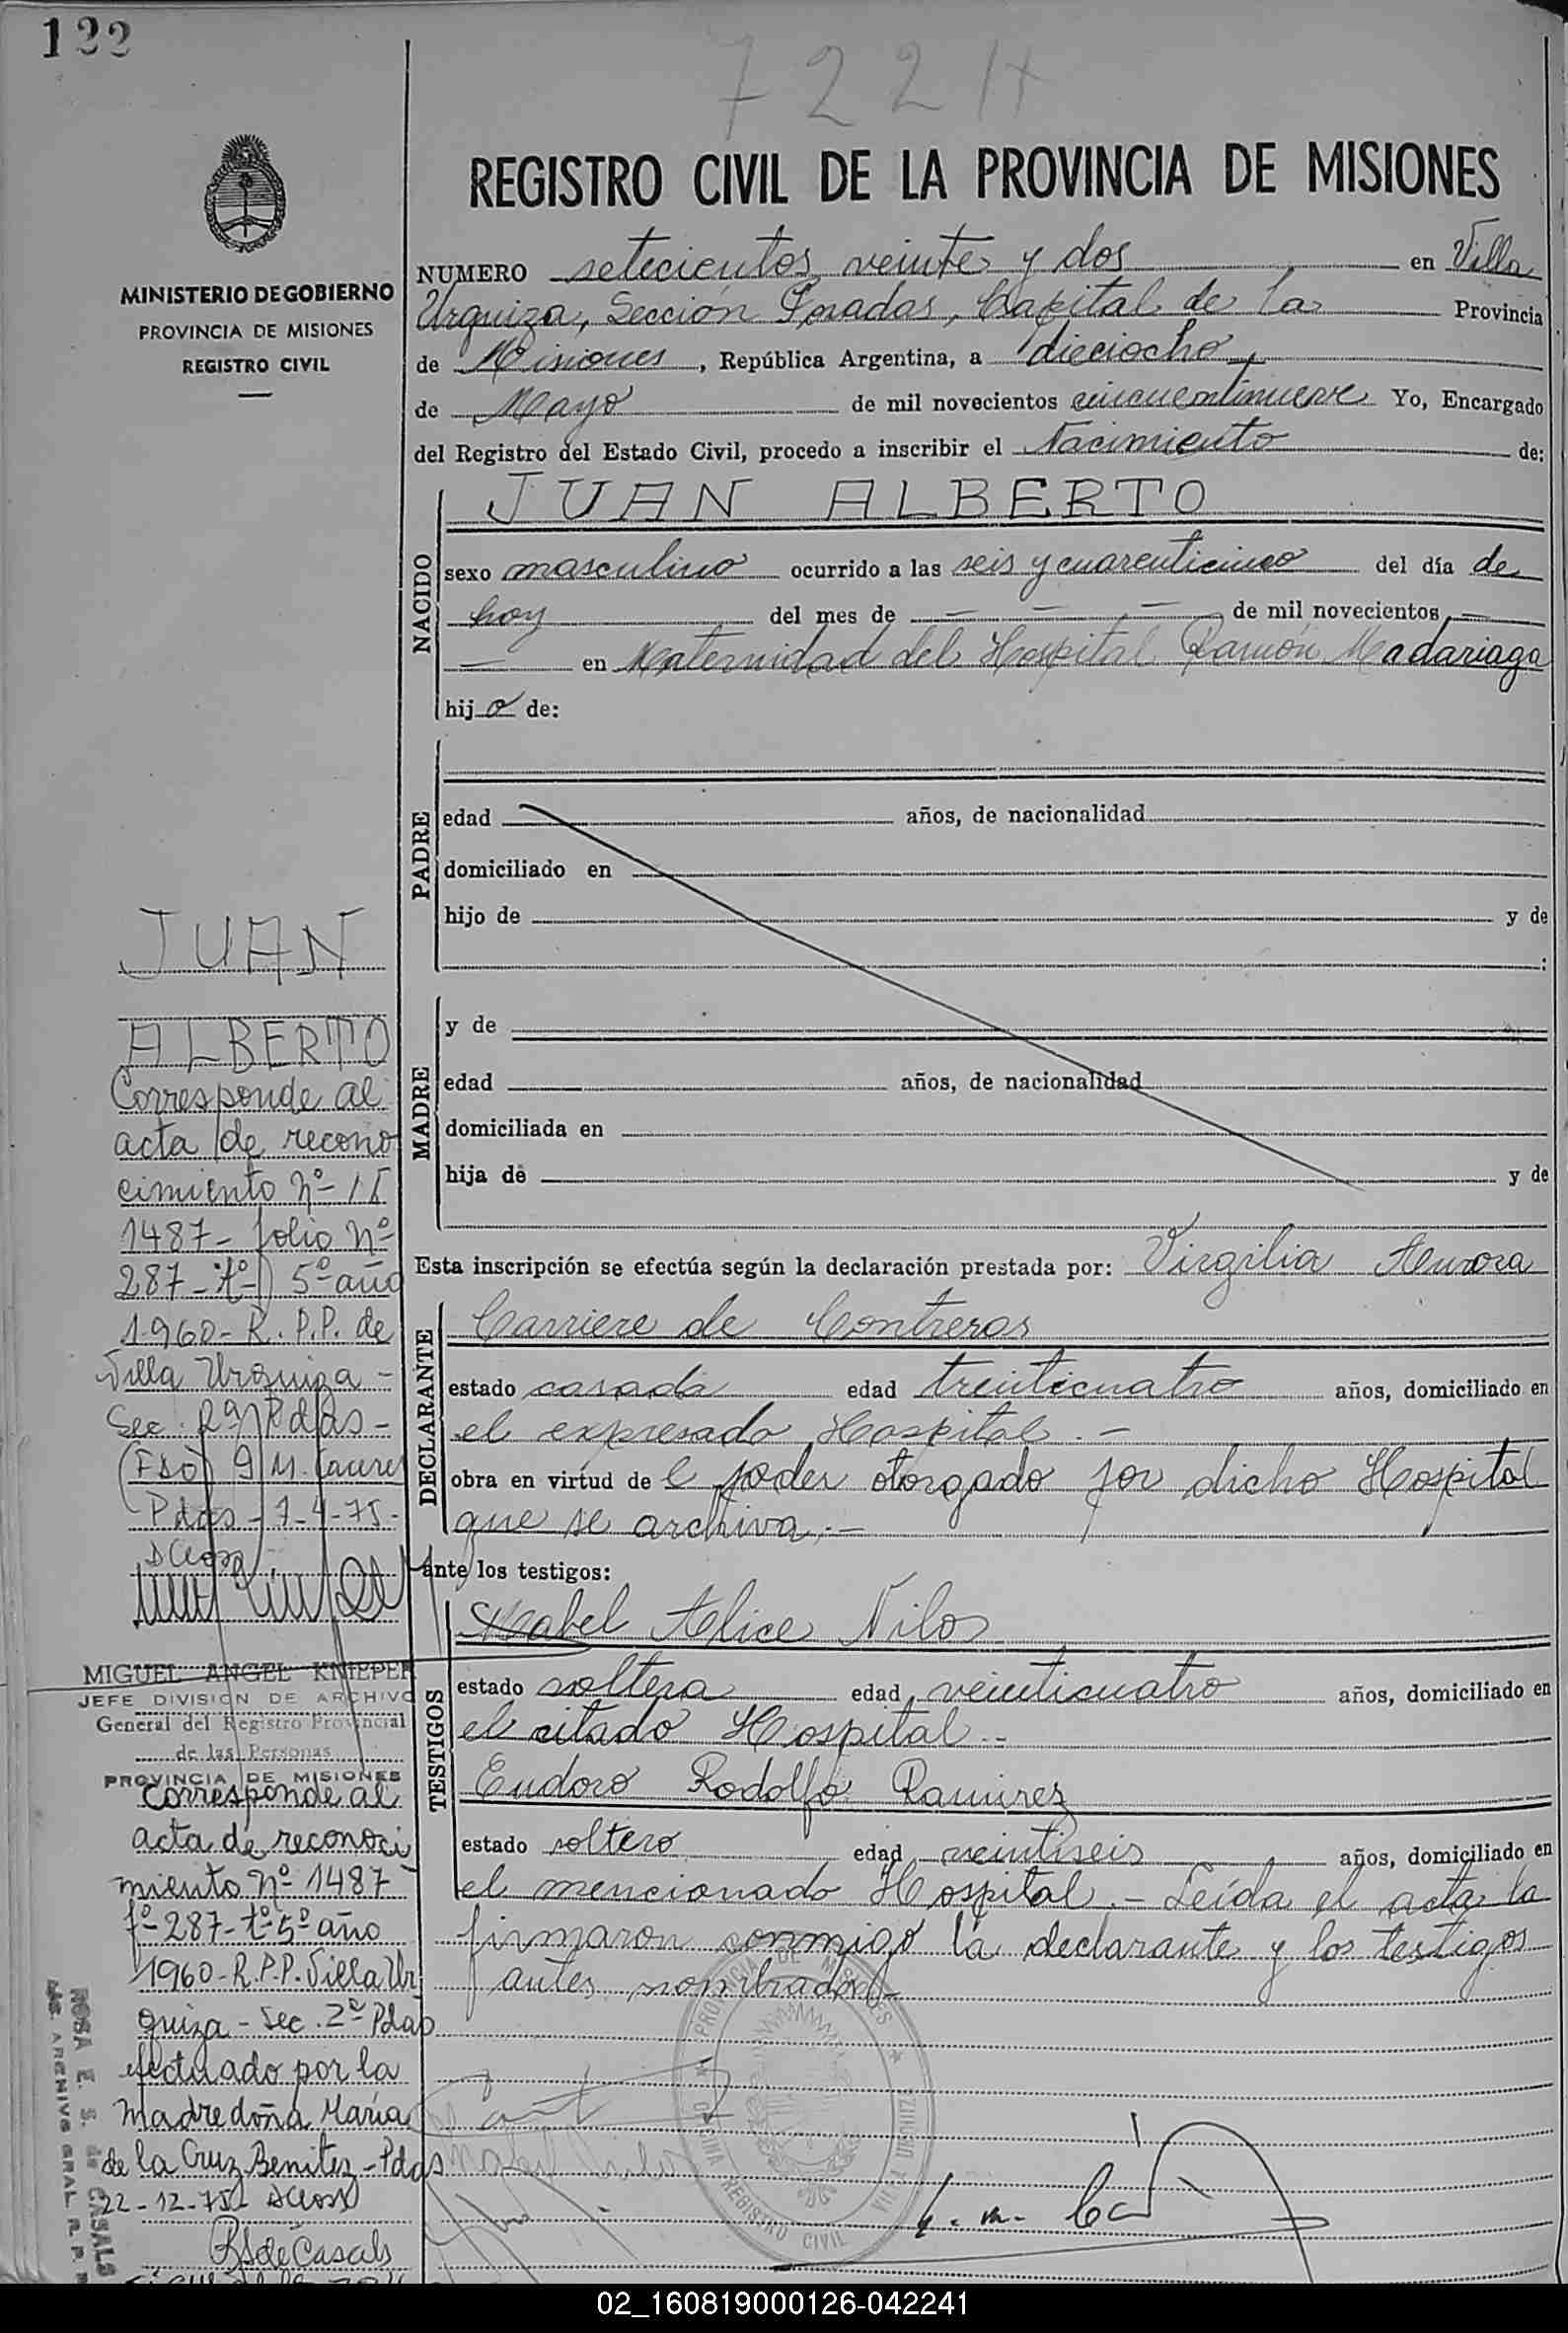 122
722 H
MINISTERIO DE GOBIERNO
PROVINCIA DE MISIONES
REGISTRO CIVIL
REGISTRO CIVIL DE LA PROVINCIA DE MISIONES
NUMERO setecientos veinte y dos en Villa
Urquiza, Sección Posadas, Capital de la Provincia
de Misiones, República Argentina, a dieciocho
de Mayo de mil novecientos cincuentinueve Yo, Encargado
del Registro del Estado Civil, procedo a inscribir el Nacimiento de:
NACIDO
JUAN ALBERTO
sexo masculino ocurrido a las seis y cuarenticinco del día de
hoy del mes de — — — de mil novecientos —
— en Maternidad del Hospital Ramón Madariaga
hijo de:
PADRE
edad años, de nacionalidad
domiciliado en
hijo de y de
:
MADRE
y de
edad años, de nacionalidad
domiciliada en
hija de y de
Esta inscripción se efectúa según la declaración prestada por: Virgilia Aurora
DECLARANTE
Carriere de Contreras
estado casada edad treinticuatro años, domiciliado en
el expresado Hospital.-
obra en virtud de el poder otorgado por dicho Hospital
que se archiva.-
ante los testigos:
TESTIGOS
Isabel Alice Nilos
estado soltera edad veinticuatro años, domiciliado en
el citado Hospital.-
Eudoro Rodolfo Ramirez
estado soltero edad veintiseis años, domiciliado en
el mencionado Hospital.- Leída el acta la
firmaron conmigo la declarante y los testigos
antes nombrados.-
PROVINCIA DE MISIONES
OFICINA REGISTRO CIVIL
VILLA URQUIZA
JUAN
ALBERTO
Corresponde al
acta de recono
cimiento Nº
1487- folio Nº
287-tº- 5º año
1960- R.P.P. de
Villa Urquiza -
Sec. 2ª Pdas -
Pdas - 7-4-75-
MIGUEL ANGEL KNIEPER
JEFE DIVISION DE ARCHIVO
General del Registro Provincial
de las Personas
PROVINCIA DE MISIONES
Corresponde al
acta de reconoci
miento Nº 1487
fº-287-tº-5º año
1960-R.P.P. Villa Ur
quiza - Sec. 2ª Pdas
efectuado por la
madre doña María
de la Cruz Benitez - Pdas
22-12-75-
RS de Casals
ROSA E. S. de CASALS
ARCHIVO GRAL R. P.
02_160819000126-042241